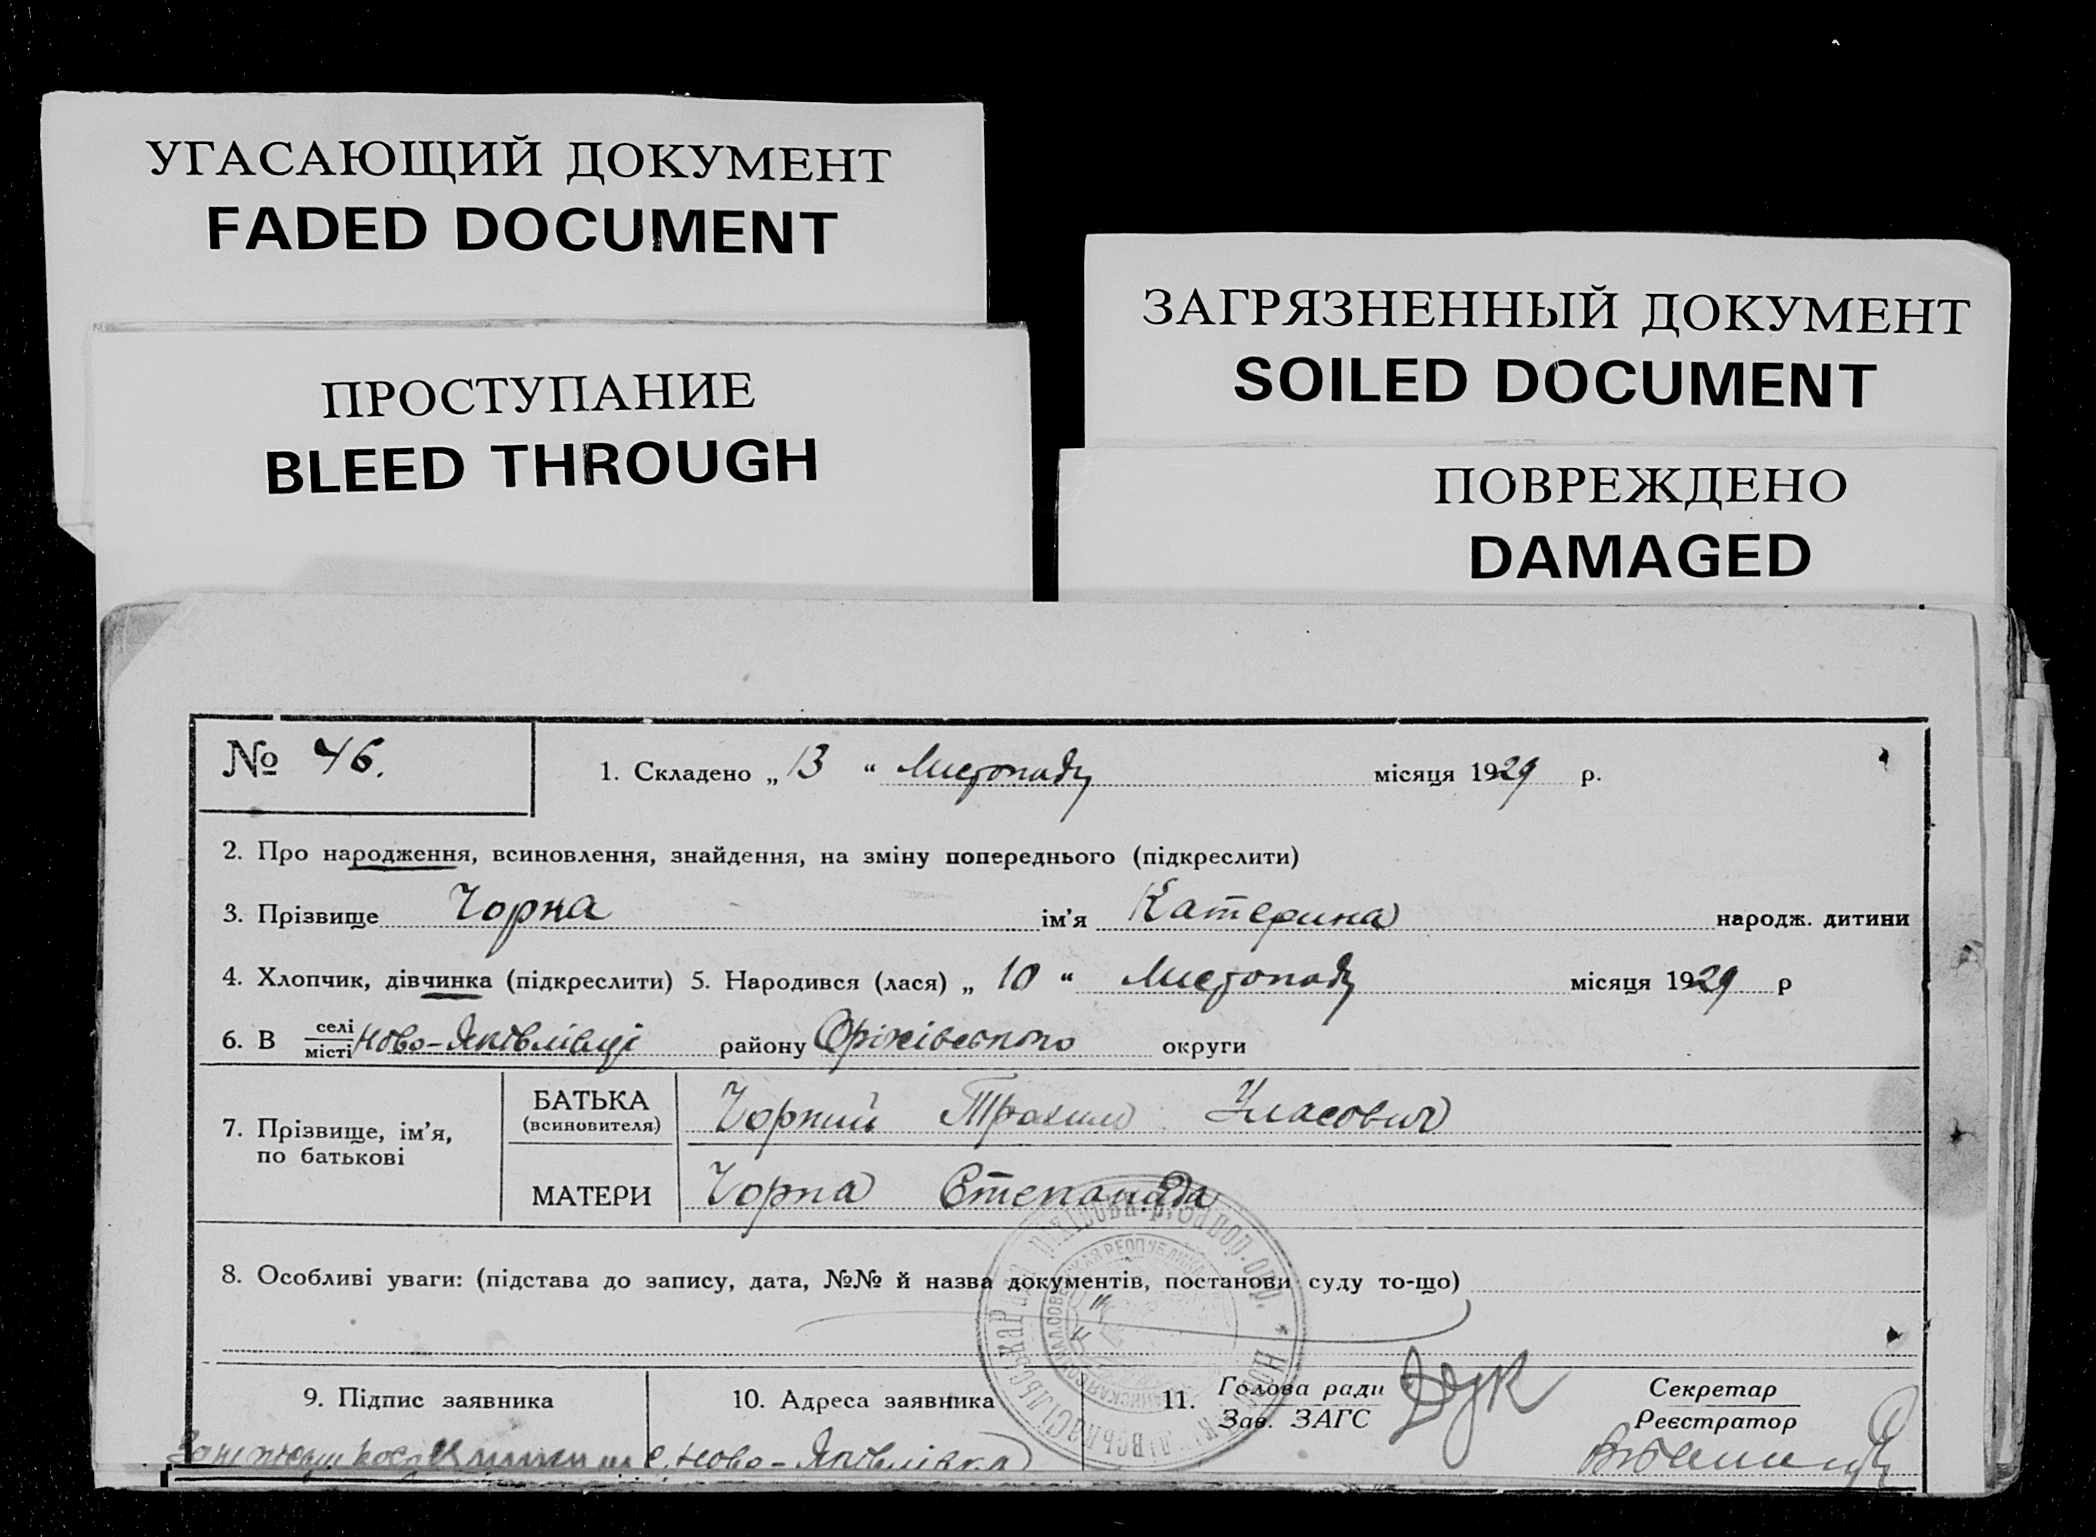 УГАСАЮЩИЙ ДОКУМЕНТ
FADED DOCUMENT
ПРОСТУПАНИЕ
BLEED THROUGH
ЗАГРЯЗНЕННЫЙ ДОКУМЕНТ
SOILED DOCUMENT
ПОВРЕЖДЕНО
DAMAGED
№ 46.
1. Складено „ 13 “ Листопаду місяця 1929 р.
2. Про народження, всиновлення, знайдення, на зміну попереднього (підкреслити)
3. Прізвище Чорна ім'я Катерина народж. дитини
4. Хлопчик, дівчинка (підкреслити) 5. Народився (лася) „ 10 “ Листопаду місяця 1929 р
6. В селі місті Ново-Яковлівці району Оріхівського округи
7. Прізвище, ім'я, по батькові
БАТЬКА (всиновителя) Чорний Трохим Уласович
МАТЕРИ Чорна Степанида
8. Особливі уваги: (підстава до запису, дата, №№ й назва документів, постанови суду то-що)
9. Підпис заявника
10. Адреса заявника
с. Ново-Яковлівка
11. Голова ради
Зав. ЗАГС
Секретар
Реєстратор